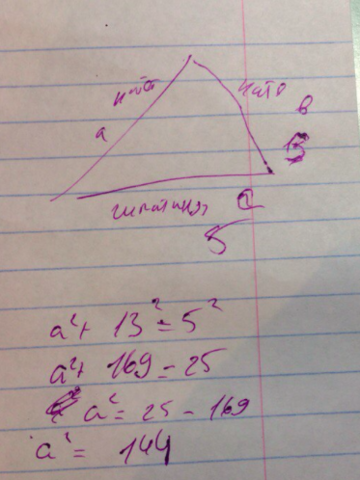 катет
катет
a
в
13
гипотинуз
с
5
a² + 13² = 5²
a² + 169 = 25
a² = 25 - 169
a² = 144